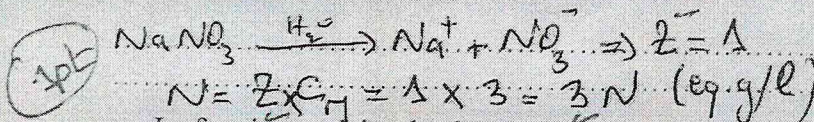 1pt NaNO₃ —H₂O→ Na⁺ + NO₃⁻ ⇒ Z = 1
N = Z x C_M = 1 x 3 = 3 N (eq.g/l)